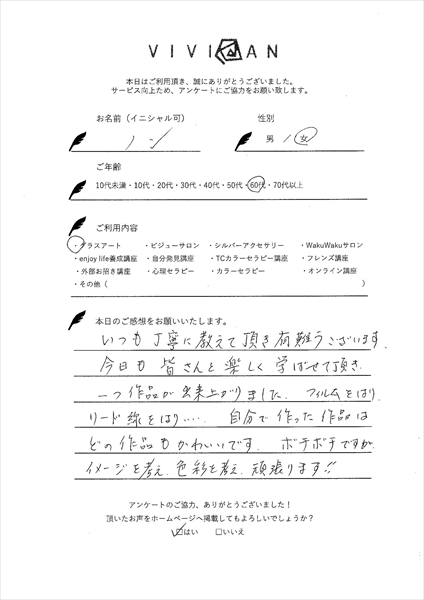 VIVIAN
本日はご利用頂き、誠にありがとうございました。
サービス向上ため、アンケートにご協力をお願い致します。
お名前（イニシャル可） 性別
ノン 男 / 女
ご年齢
10代未満・10代・20代・30代・40代・50代・60代・70代以上
ご利用内容
・グラスアート ・ビジューサロン ・シルバーアクセサリー ・WakuWakuサロン
・enjoy life養成講座 ・自分発見講座 ・TCカラーセラピー講座 ・フレンズ講座
・外部お招き講座 ・心理セラピー ・カラーセラピー ・オンライン講座
・その他（ ）
本日のご感想をお願いいたします。
いつも丁寧に教えて頂き有難うございます.
今日も皆さんと楽しく学ばせて頂き.
一つ作品が出来上がりました. フィルムをはり.
リード線をはり..... 自分で作った作品は
どの作品もかわいいです. ボチボチですが
イメージを考え.色彩を考え.頑張ります!!
アンケートのご協力、ありがとうございました！
頂いたお声をホームページへ掲載してもよろしいでしょうか？
☑はい □いいえ